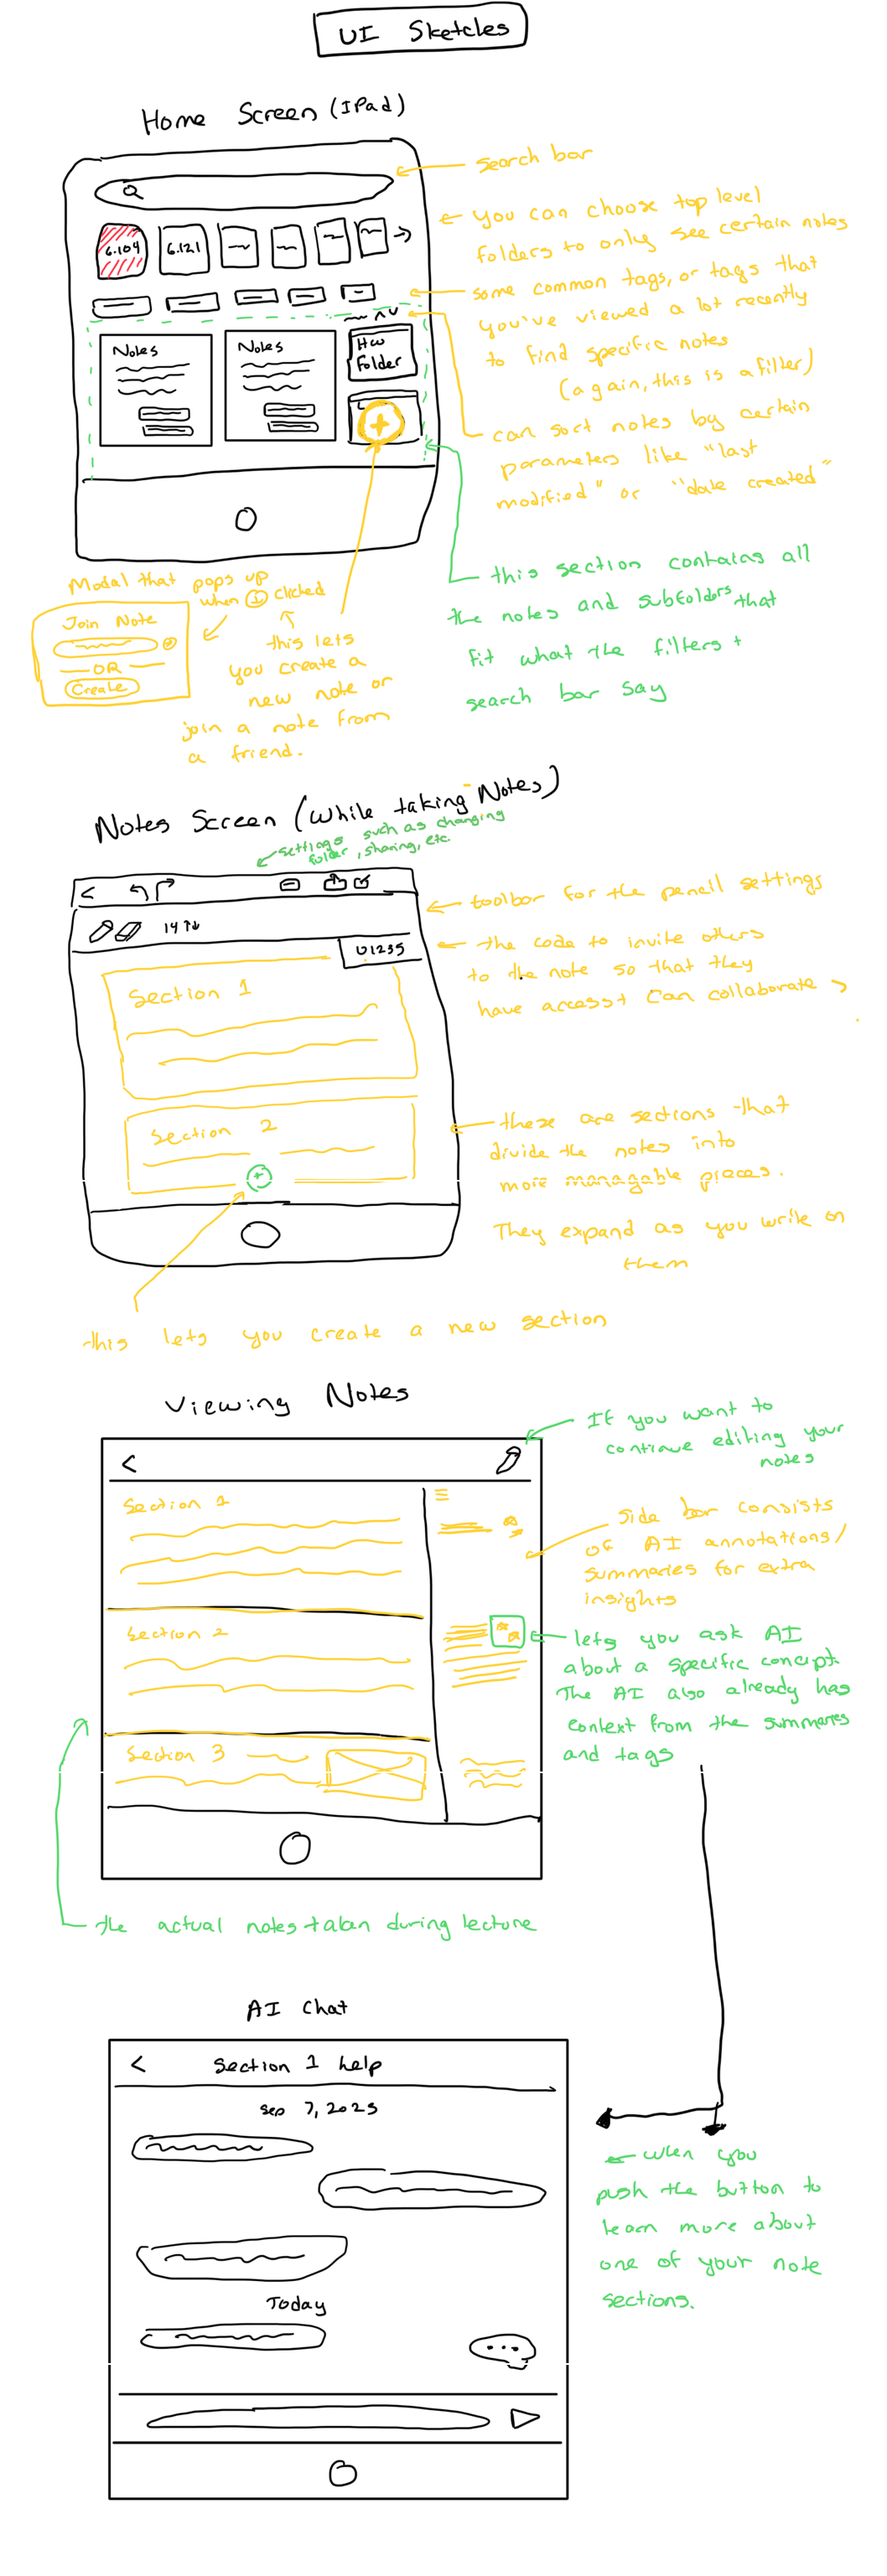 UI Sketches
Home Screen (IPad)
search bar
6.104
6.121
you can choose top level
folders to only see certain notes
some common tags, or tags that
you've viewed a lot recently
to find specific notes
(again, this is a filter)
Notes
Notes
HW
Folder
+
can sort notes by certain
parameters like "last
modified" or "date created"
this section contains all
the notes and subfolders that
fit what the filters +
search bar say
Modal that pops up
when + clicked
Join Note
OR
Create
this lets
you create a
new note or
join a note from
a friend.
Notes Screen (while taking Notes)
settings such as changing
folder, sharing, etc.
14
01235
toolbar for the pencil settings
the code to invite others
to the note so that they
have access + can collaborate
Section 1
Section 2
+
these are sections that
divide the notes into
more managable pieces.
They expand as you write on
them
this lets you create a new section
Viewing Notes
If you want to
continue editing your
notes
Section 1
side bar consists
of AI annotations/
summaries for extra
insights
Section 2
lets you ask AI
about a specific concept.
The AI also already has
context from the summaries
and tags
Section 3
the actual notes taken during lecture
AI Chat
Section 1 help
Sep 7, 2025
when you
push the button to
learn more about
one of your note
sections.
Today